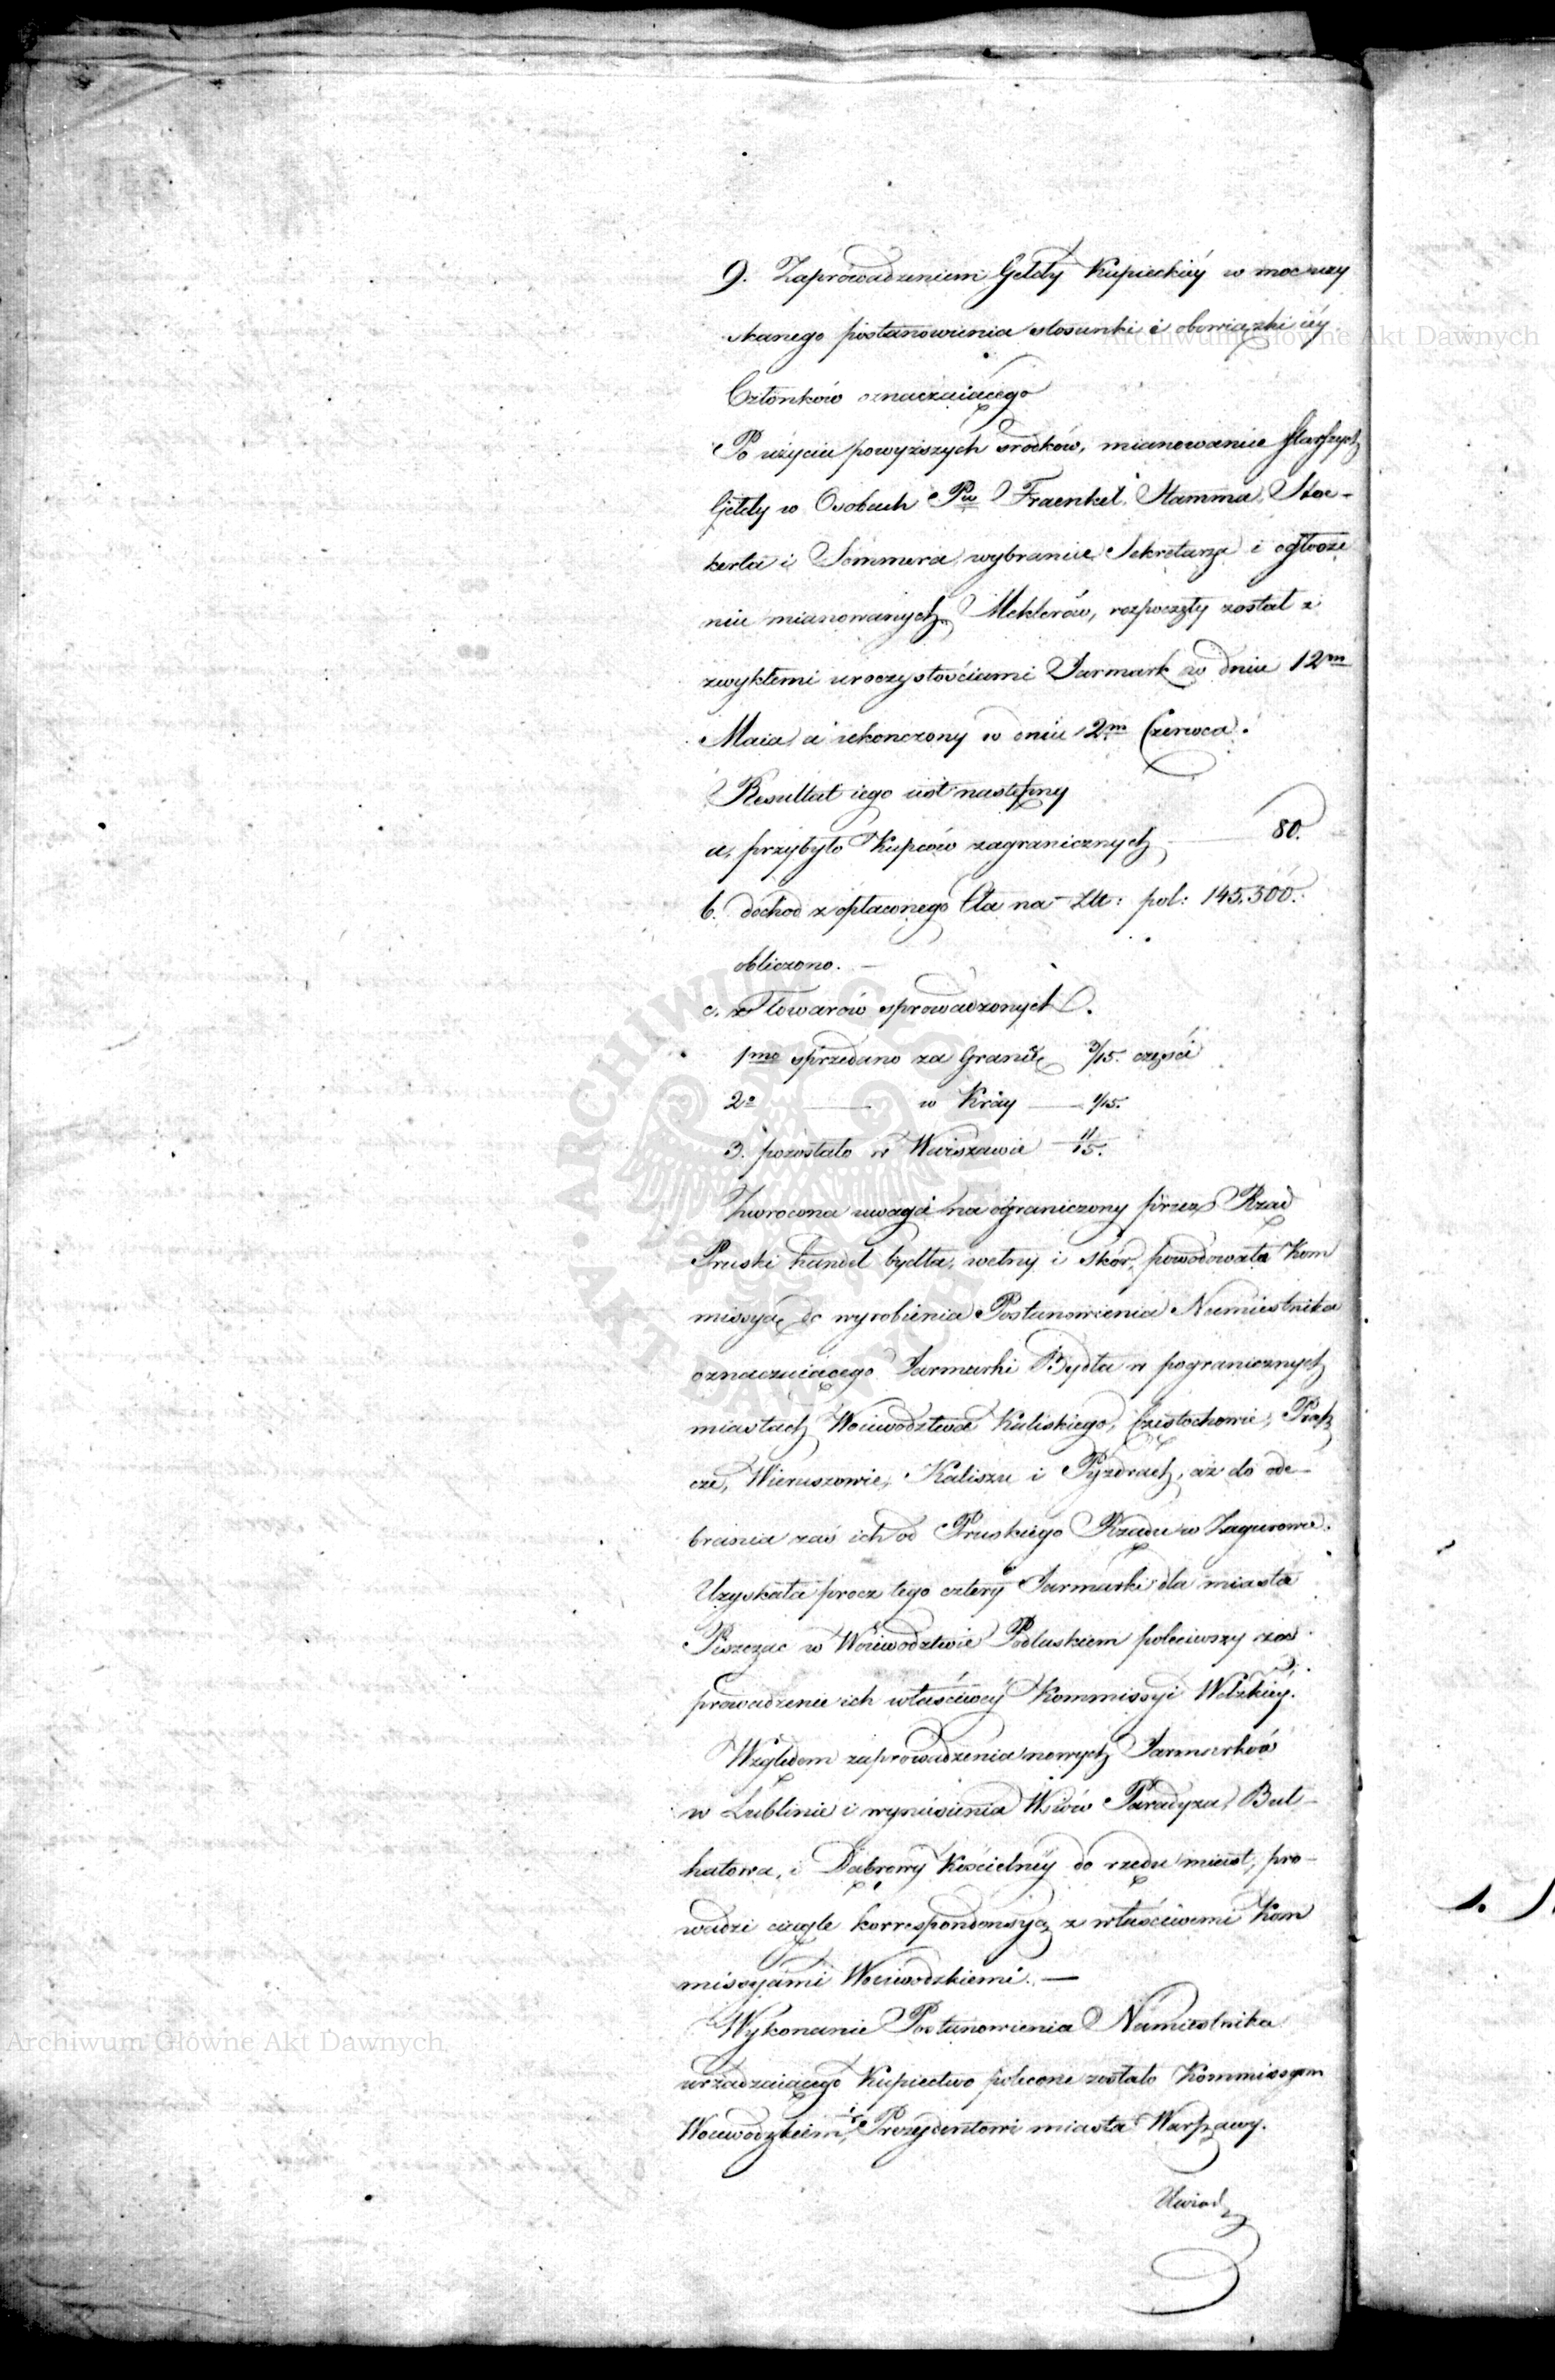 9. Zaprowadzeniem Giełdy Kupieckiéy w moc uzy
skanego postanowienia stosunki i obowiązki iéy
Członków oznaczaiącego
Po użyciu powyższych srodków, mianowanie Starszych
Giełdy w Osobach Pw Fraenkel, Stamma, Stoc-
kerta i Sommera, wybranie Sekretarza i ogłosze
niu mianowanych Meklerów, rozpoczęty został z
zwykłemi uroczystościami Jarmark w dniu 12m
Maia, a ukonczony w dniu 2m Czerwca.
Resultat iego iest następny
a, przybyło Kupców zagranicznych — 80.
b. dochod z opłaconego Cła na Złt: pol: 145,500.
obliczono. —
c. z Towarów sprowadzonych.
1mo sprzedano za Granicę 3/15. części
2o — w Kray — 1/15.
3. pozostało w Warszawie — 11/15.
Zwrocona uwaga na ograniczony przez Rząd
Pruski handel bydła, wełny i skór, powodowała Kom
missyą do wyrobienia Postanowienia Namiestnika
oznaczaiącego Jarmarki Bydła w pogranicznych
miastach Woiewodztwa Kaliskiego, Częstochowie, Prasz
cze, Wieruszowie, Kaliszu i Pyzdrach, aż do ode-
brania zaś ich od Pruskiego Rządu w Zagurowie.
Uzyskała procz tego cztery Jarmarki dla miasta
Piszczac w Woiewodztwie Podlaskiem poleciwszy zaś
prowadzenie ich właściwey Kommissyi Wdzkiéy.
Względem zaprowadzenia nowych Jarmarków
w Lublinie i wyniesienia Wsiów Paradyza, Beł-
hatowa, i Dąbrowy Kościelnéy do rzędu miast, pro-
wadzi ciągle korrespondensyą z właściwemi Kom
missyami Woiewodzkiemi. —
Wykonanie Postanowienia Namiestnika
urządzaiącego Kupiectwo polecone zostało Kommissyom
Woiewodzkiem, i Prezydentowi miasta Warszawy.
Uwiad
1.
Archiwum Główne Akt Dawnych
Archiwum Główne Akt Dawnych